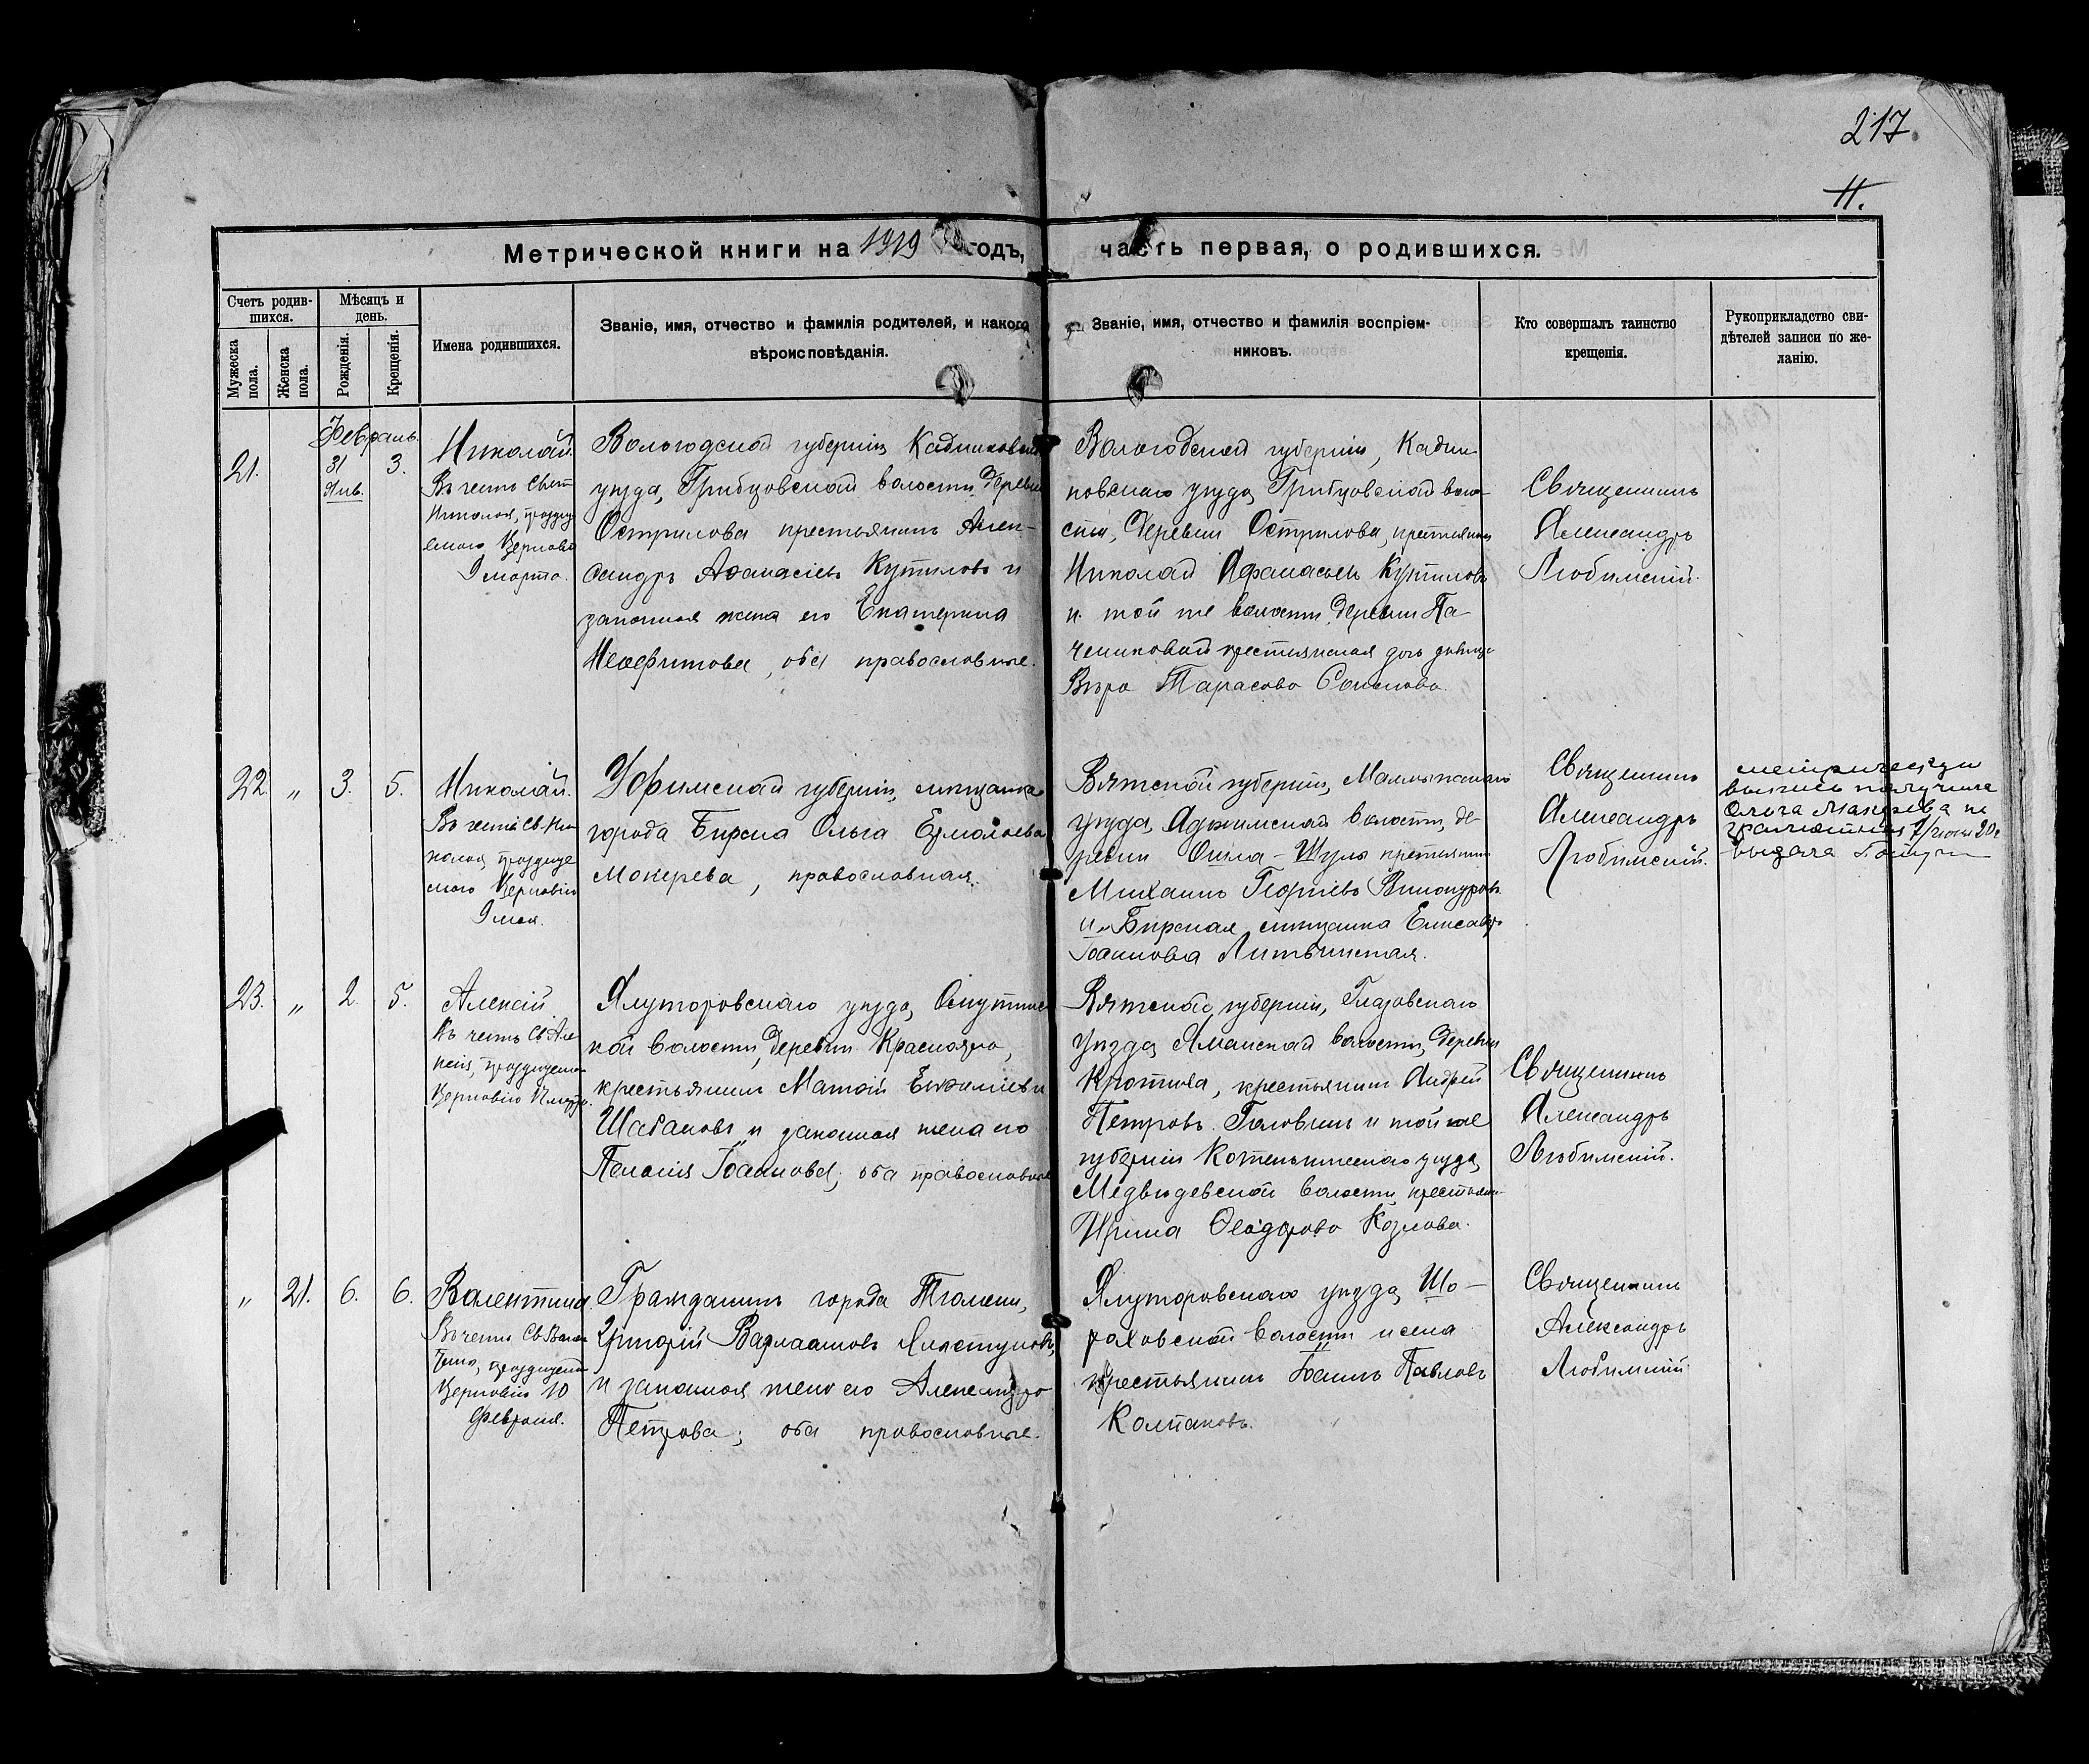 217.
11.
Метрической книги на 1919 годъ, часть первая, о родившихся.
Счетъ родив-
шихся.
Мужеска
пола.
Женска
пола.
Мѣсяцъ и
день.
Рожденія.
Крещенія.
Имена родившихся.
Званіе, имя, отчество и фамилія родителей, и какого
вѣроисповѣданія.
Званіе, имя, отчество и фамилія воспріем-
никовъ.
Кто совершалъ таинство
крещенія.
Рукоприкладство сви-
дѣтелей записи по же-
ланію.
Февраль.
21.
31
Янв.
3.
Николай.
Въ честь Свят
Николая, праздну
емаго Церковію
9 марта.
Вологодской губерніи Кадниковскаго
уѣзда, Грибцовской волости, деревни
Острилова крестьянинъ Алек-
сандръ Аѳанасіевъ Кутиловъ и
законная жена его Екатерина
Неофитова, оба православные.
Вологодской губерніи, Кадни-
ковскаго уѣзда, Грибцовской воло-
сти, деревни Острилова, крестьянинъ
Николай Афанасьевъ Кутиловъ
и той же волости, деревни Па-
крестьянская дочь дѣвица
Вѣра Тарасова
Священникъ
Александръ
Любимскій.
22. " 3. 5.
Николай.
Въ честь Св. Ни
колая, праздну
емаго Церковію
9 мая.
Уфимской губерніи, мѣщанка
города Бирска Ольга Ермолаева
Мокерева, православная.
Вятской губерніи, Малмыжскаго
уѣзда, Аджимской волости, де-
ревни Ошла-Шула крестьянинъ
Михаилъ Георгіевъ Винокуровъ
и Бирская мѣщанка Елисавета
Іоаннова Литвинская.
Священникъ
Александръ
Любимскій.
выпись получила
Ольга Макерева не
грамотная 7/ 20 г
выдача
23. " 2. 5.
Алексій.
Въ честь Св Але
ксія, празднуемаго
Церковію
Ялуторовскаго уѣзда,
кой волости, деревни Красноярка,
крестьянинъ Матѳій
Шабановъ и законная жена его
Пелагія Іоаннова, оба православные
Вятской губерніи, Глазовскаго
уѣзда, волости, деревни
крестьянинъ Андрей
Петровъ Головинъ и той же
губерніи Котельническаго уѣзда,
Медвѣдевской волости крестьянка
Ирина Ѳеодорова Козлова.
Священникъ
Александръ
Любимскій.
" 21. 6. 6.
Валентина.
Въ честь Св Вален
тина, празднуемаго
Церковію 10
февраля.
Гражданинъ города Тюмени,
Григорій Варлаамовъ
и законная жена его Александра
Петрова; оба православные.
Ялуторовскаго уѣзда, Шо-
роховской волости и села
крестьянинъ Іоаннъ Павловъ
Колпаковъ.
Священникъ
Александръ
Любимскій